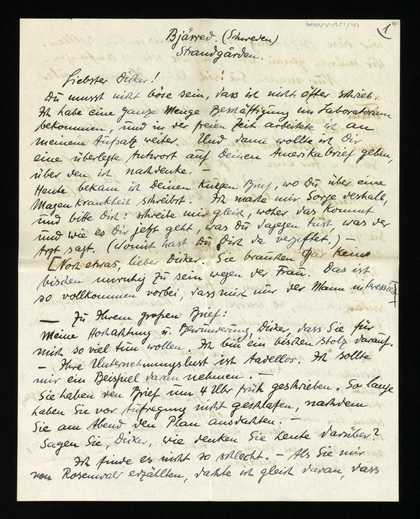 1
Bjärred. (Schweden)
Strandgården.
Liebster Dicker!
Du musst nicht böse sein, dass ich nicht öfter schreib.
Ich habe eine ganze Menge Beschäftigung im Laboratorium
bekommen, und in der freien Zeit arbeitete ich an
meinem Aufsatz weiter. Und dann wollte ich Dir
eine überlegte Antwort auf Deinen Amerikabrief geben,
über den ich nachdenke. –
Heute bekam ich Deinen kurzen Brief, wo Du über eine
Magenkrankheit schreibst. Ich mache mir Sorge deshalb,
und bitte Dich: schreibe mir gleich, woher das kommt
und wie es Dir jetzt geht, was Du dagegen tust, was der
Arzt sagt. (Womit hast Du Dich da vergiftet.) –
[Noch etwas, lieber Dicker. Sie brauchen gar kein
bisschen unruhig zu sein wegen der Frau. Das ist
so vollkommen vorbei, dass mich nur der Mann interessiert]
– Zu Ihrem großen Brief:
Meine Hochachtung u. Bewunderung, Dicker, dass Sie für
mich so viel tun wollen. Ich bin ein bischen stolz darauf.
– Ihre Unternehmungslust ist tadellos. Ich sollte
mir ein Beispiel daran nehmen. –
Sie haben den Brief um 4 Uhr früh geschrieben. So lange
haben Sie vor Aufregung nicht geschlafen, nachdem
Sie am Abend den Plan ausdachten. –
Sagen Sie, Dicker, wie denken Sie heute darüber?
Ich finde es nicht so schlecht. – Als Sie mir
von Rosenwald erzählten, dachte ich gleich daran, dass